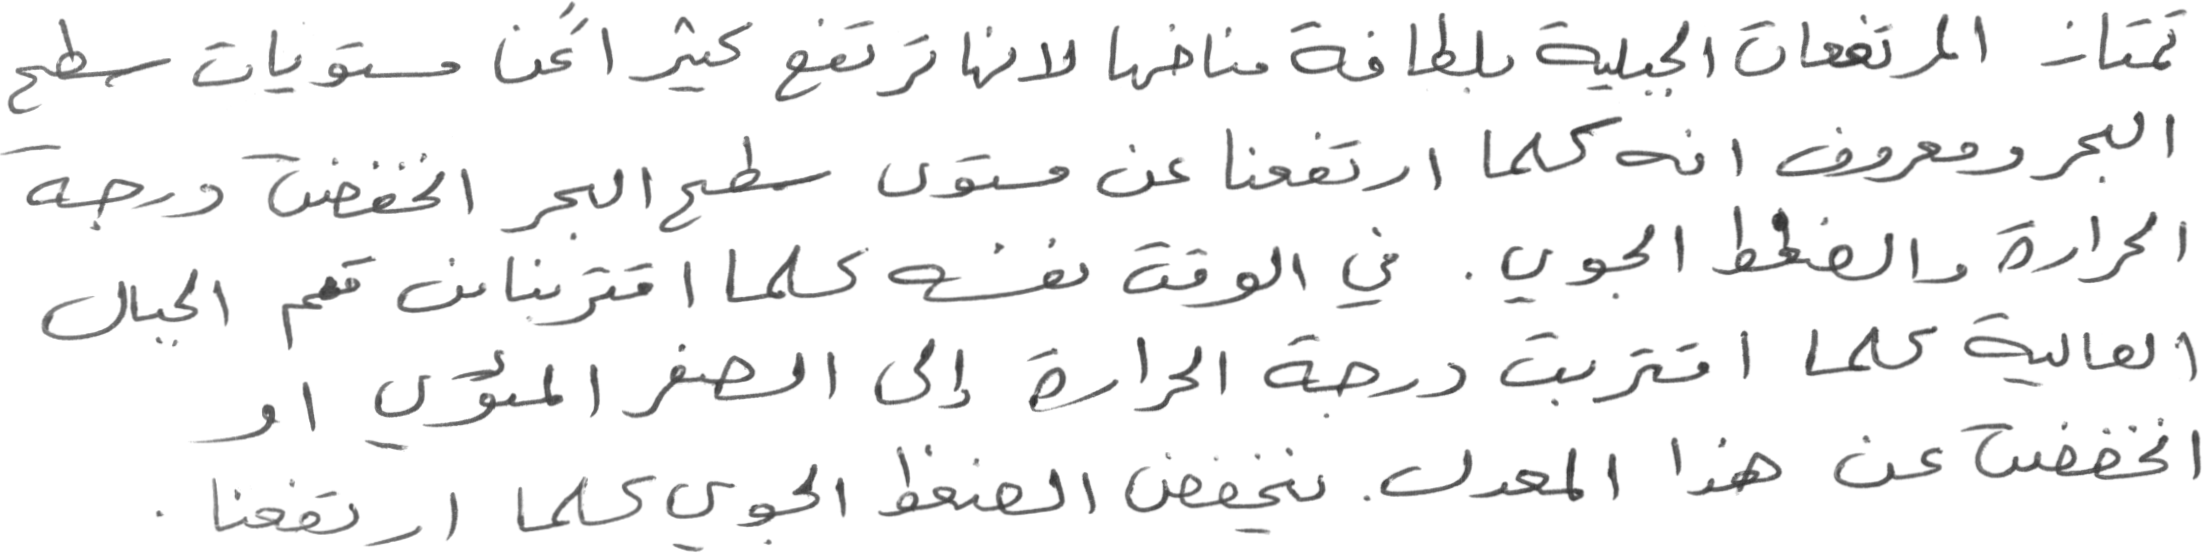 تمتاز المرتفعات الجبلية بلطافة مناخها لانها ترتفع كثيراً عن مستويات سطح
البحر ومعروف انه كلما ارتفعنا عن مستوى سطح البحر انخفضت درجة
الحرارة والضغط الجوي. في الوقت نفسه كلما اقتربنا من قمم الجبال
العالية كلما اقتربت درجة الحرارة إلى الصفر المئوي او
انخفضت عن هذا المعدل. ينخفض الضغط الجوي كلما ارتفعنا.